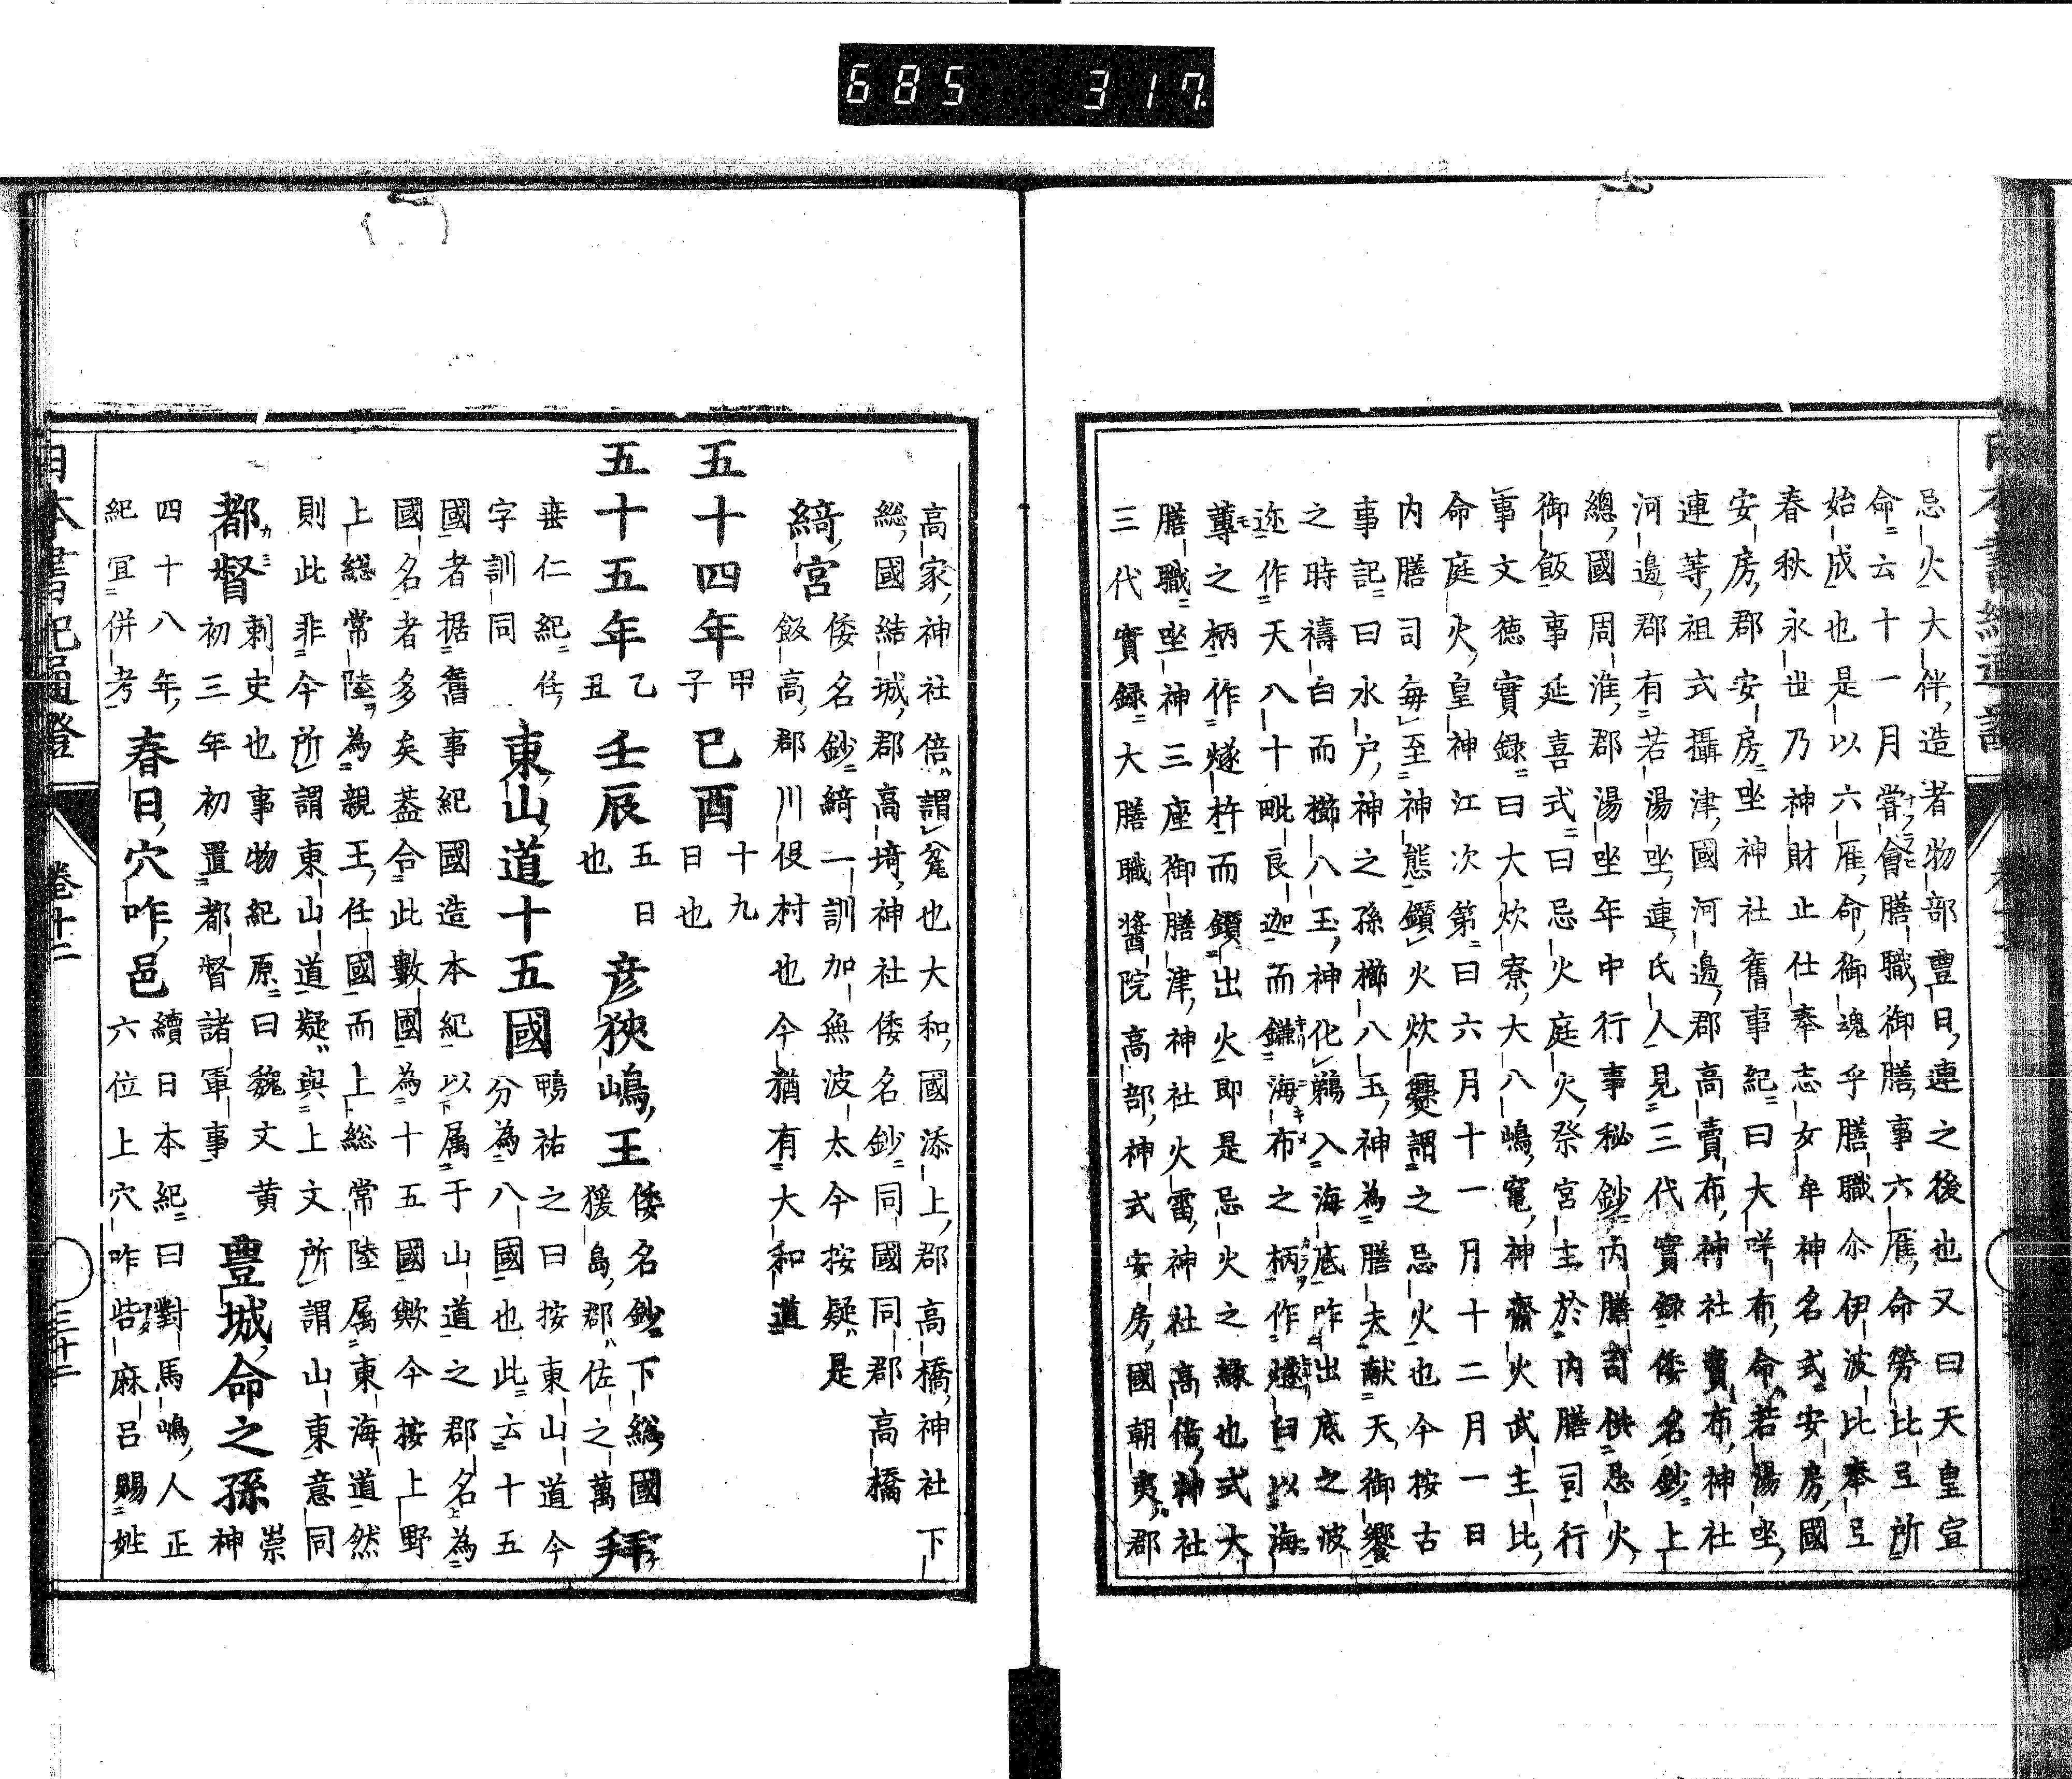 685 317
忌火大伴造者物部豊日連之後也又曰天皇宣
命云十一月嘗會膳職御膳事六雁命勞比弖所
始成也是以六雁命御魂乎膳職尒伊波比奉弖
春秋永世乃神財止仕奉志女牟神名式安房國
安房郡安房坐神社舊事紀曰大咩布命若湯坐
連等祖式攝津國河邊郡高賣布神社賣布神社
河邊郡有若湯坐連氏人見三代實録倭名鈔上
總國周淮郡湯坐年中行事秘鈔内膳司供忌火
御飯事延喜式曰忌火庭火祭宮主於内膳司行
事文徳實録曰大炊寮大八嶋竃神齋火武主比
命庭火皇神江次第曰六月十一月十二月一日
内膳司毎至神態鑽火炊爨謂之忌火也今按古
事記曰水户神之孫櫛八玉神為膳夫献天御饗
之時禱白而櫛八玉神化鵜入海底咋出底之波
迩作天八十毗良迦而鎌海布之柄作燧臼以海
蓴之柄作燧杵而鑽出火即是忌火之縁也式大
膳職坐神三座御膳津神社火雷神社高倍神社
三代實録大膳職醬院高部神式安房國朝夷郡
高家神社倍謂瓫也大和國添上郡高橋神社下
総國結城郡高埼神社倭名鈔同國同郡高橋
綺宮 倭名鈔綺一訓加無波太今按疑是
飯高郡川俣村也今猶有大和道
五十四年 甲子 巳酉 十九日也
五十五年 乙丑 壬辰 五日也 彦狹嶋王 倭名鈔下総國猨島郡佐之萬 拜
垂仁紀任字訓同 東山道十五國 鴨祐之曰按東山道今分為八國也此云十五
國者据舊事紀國造本紀以属于山道之郡名為
國名者多矣盖合此數國為十五國歟今按上野
上総常陸為親王任國而上総常陸属東海道然
則此非今所謂東山道疑與上文所謂山東意同
都督 刺史也事物紀原曰魏文黄初三年初置都督諸軍事 豊城命之孫 崇神
四十八年紀冝併考 春日穴咋邑 續日本紀曰對馬嶋人正六位上穴咋呰麻呂賜姓
日本書紀通證 卷十二 三十二